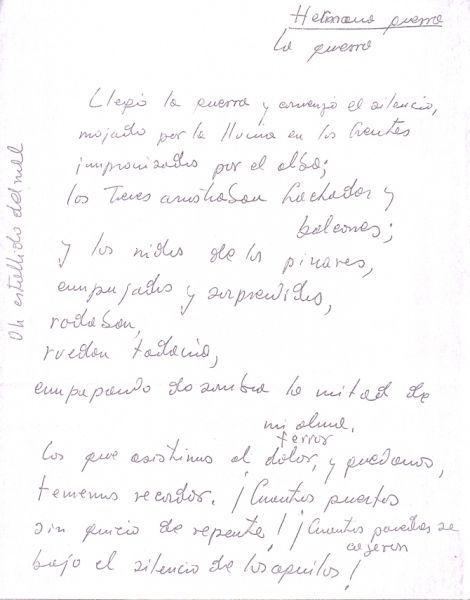 Hermana guerra
La guerra
Llegó la guerra y comenzó el silencio,
mojado por la lluvia en los frentes
improvisados por el alba;
los trenes arrastraban fachadas y
balcones;
y los nidos de los pinares,
empujados y sorprendidos,
rodaban,
ruedan todavía,
empapando de sombra la mitad de
mi alma.
terror
Los que asistimos al dolor, y quedamos,
tenemos recordor. ¡Cuántas puertas
sin quicio de repente! ¡Cuántas paredes se
cayeron
bajo el silencio de los aquilos!
Oh estallido del mal